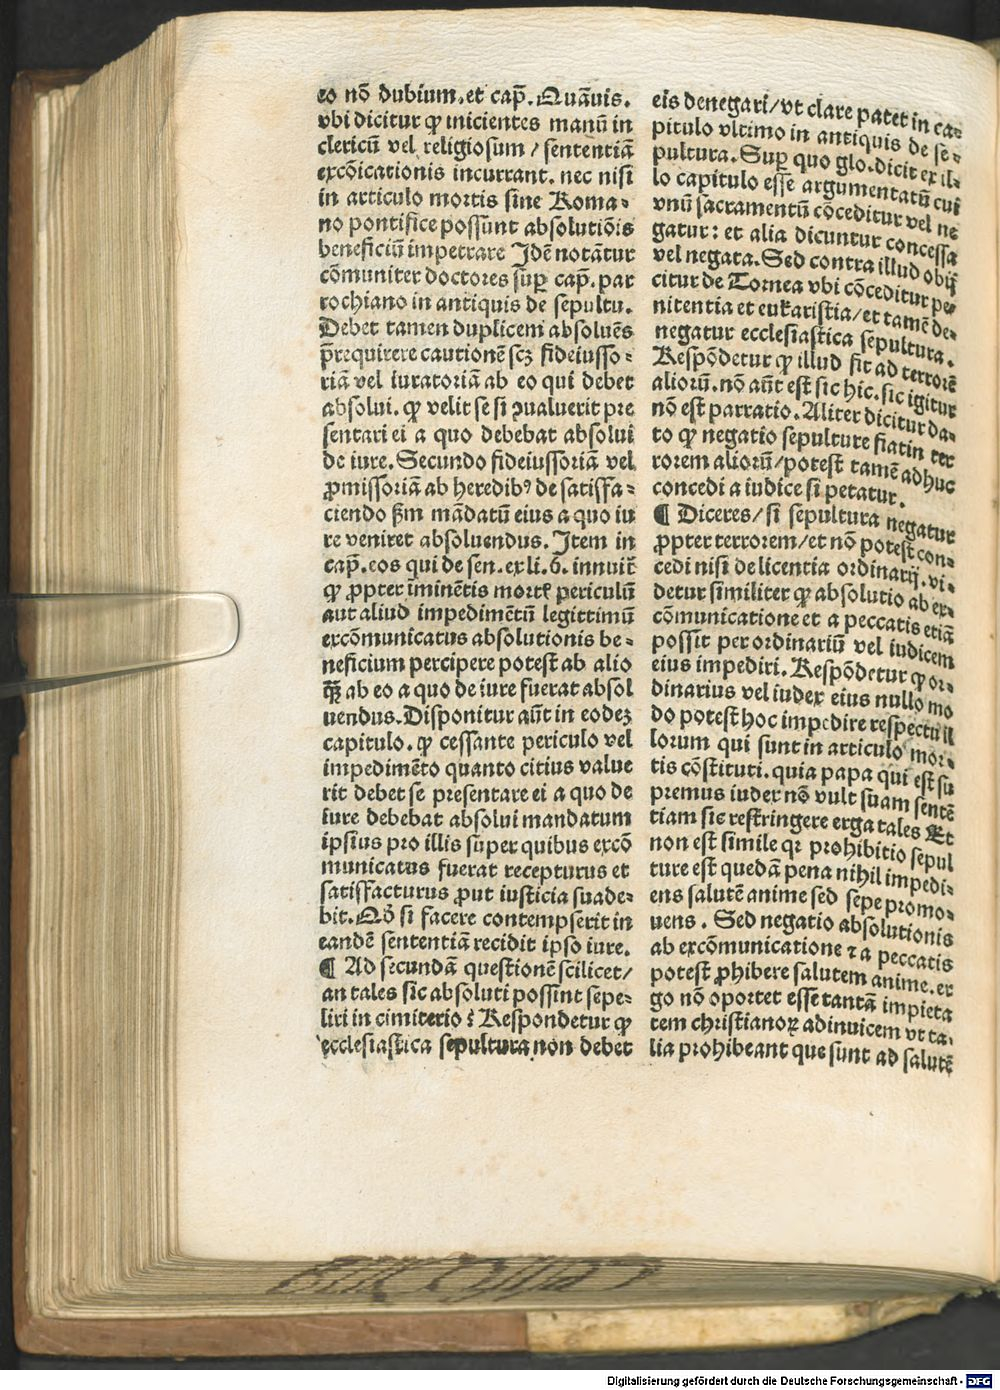 eo nō dubium.et cap̄.Quāuis.
vbi dicitur ꝙ inicientes manū in
clericū vel religiosum / sententiā
excōicationis incurrant. nec nisi
in articulo mortis sine Roma⸗
no pontifice possunt absolutiōis
beneficiū impetrare Idē notātur
cōmuniter doctores suꝑ cap̄. par
rochiano in antiquis de sepultu.
Debet tamen duplicem absoluēs
p̄requirere cautionē scꝫ fideiusso⸗
riā vel iuratoriā ab eo qui debet
absolui. ꝙ velit se si ꝯualuerit pre
sentari ei a quo debebat absolui
de iure. Secundo fideiussoriā vel
ꝓmissoriā ab heredibꝰ de satisfa⸗
ciendo ẜm mādatū eius a quo iu
re veniret absoluendus. Item in
cap̄. eos qui de sen. ex li. 6. innuit̄
ꝙ ꝓpter īminētis mortꝭ periculū
aut aliud impedimētū legittimū
excōmunicatus absolutionis be⸗
neficium percipere potest ab alio
qȝ̄ ab eo a quo de iure fuerat absol
uendus. Disponitur aūt in eodeꝫ
capitulo. ꝙ cessante periculo vel
impedimēto quanto citius value
rit debet se presentare ei a quo de
iure debebat absolui mandatum
ipsius pro illis super quibus excō
municatus fuerat recepturus et
satisfacturus ꝓut iusticia suade⸗
bit. Qď si facere contempserit in
eandē sententiā recidit ipso iure.
¶ Ad secundā questionē scilicet/
an tales sic absoluti possint sepe⸗
liri in cimiterio ? Respondetur ꝙ
ecclesiastica sepultura non debet
eis denegari/vt clare patet in ca⸗
pitulo vltimo in antiquis de se⸗
pultura. Suꝑ quo glo. dicit ex il⸗
lo capitulo esse argumentatū cui
vnū sacramentū cōceditur vel ne
gatur: et alia dicuntur concessa
vel negata. Sed contra illud obij
citur de Tornea vbi cōceditur pe⸗
nitentia et eukaristia/et tamē de⸗
negatur ecclesiastica sepultura.
Respōdetur ꝙ illud fit ad terrorē
aliorū. nō aūt est sic hic. sic igitur
nō est par ratio. Aliter dicitur da⸗
to ꝙ negatio sepulture fiat in ter
rorem aliorū/potest tamē adhuc
concedi a iudice si petatur.
¶ Diceres/ si sepultura negatur
ꝓpter terrorem/et nō potest con⸗
cedi nisi de licentia ordinarij. vi⸗
detur similiter ꝙ absolutio ab ex⸗
cōmunicatione et a peccatis etiā
possit per ordinariū vel iudicem
eius impediri. Respōdetur ꝙ or⸗
dinarius vel iudex eius nullo mo
do potest hoc impedire respectu il
lorum qui sunt in articulo mor⸗
tis cōstituti. quia papa qui est su
premus iudex nō vult suam sentē
tiam sic restringere erga tales Et
non est simile qꝛ prohibitio sepul
ture est quedā pena nihil impedi⸗
ens salutē anime sed sepe promo⸗
uens . Sed negatio absolutionis
ab excōmunicatione ⁊ a peccatis
potest ꝓhibere salutem anime. er
go nō oportet esse tantā impieta
tem christianoꝝ adinuicem vt ta⸗
lia prohibeant que sunt ad salutē
Digitalisierung gefördert durch die Deutsche Forschungsgemeinschaft - DFG